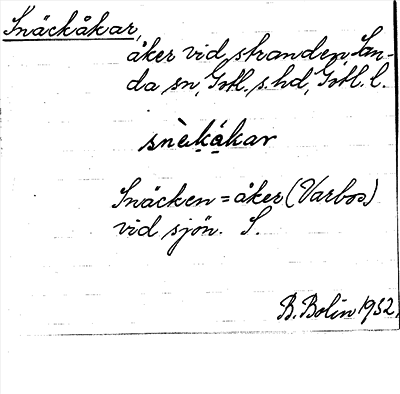 Snäckåkar,
åker vid stranden, San-
da sn, Gotl. s. hd, Gotl. l.
snèkákar
Snäcken = åker (Varbos)
vid sjön. S.
B. Bolin 1932.